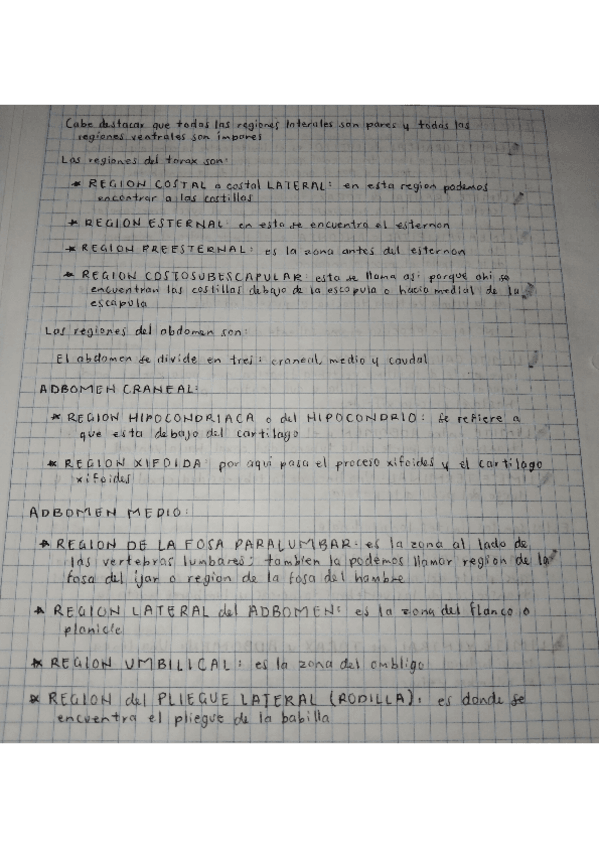 Cabe destacar que todas las regiones laterales son pares y todas las
regiones ventrales son impares
Las regiones del torax son:
* REGION COSTAL o costal LATERAL: en esta region podemos
encontrar a las costillas
* REGION ESTERNAL: en esta se encuentra el esternon
* REGION PREESTERNAL: es la zona antes del esternon
* REGION COSTOSUBESCAPULAR: esta se llama asi porque ahi se
encuentran las costillas debajo de la escapula o hacia medial de la
escapula
Las regiones del abdomen son:
El abdomen se divide en tres: craneal, medio y caudal
ADBOMEN CRANEAL:
* REGION HIPOCONDRIACA o del HIPOCONDRIO: se refiere a
que esta debajo del cartilago
* REGION XIFOIDA: por aqui pasa el proceso xifoides y el cartilago
xifoides
ADBOMEN MEDIO:
* REGION DE LA FOSA PARALUMBAR: es la zona al lado de
las vertebras lumbares; tambien la podemos llamar region de la
fosa del ijar o region de la fosa del hambre
* REGION LATERAL del ADBOMEN: es la zona del flanco o
planicie
* REGION UMBILICAL: es la zona del ombligo
* REGION del PLIEGUE LATERAL (RODILLA): es donde se
encuentra el pliegue de la babilla